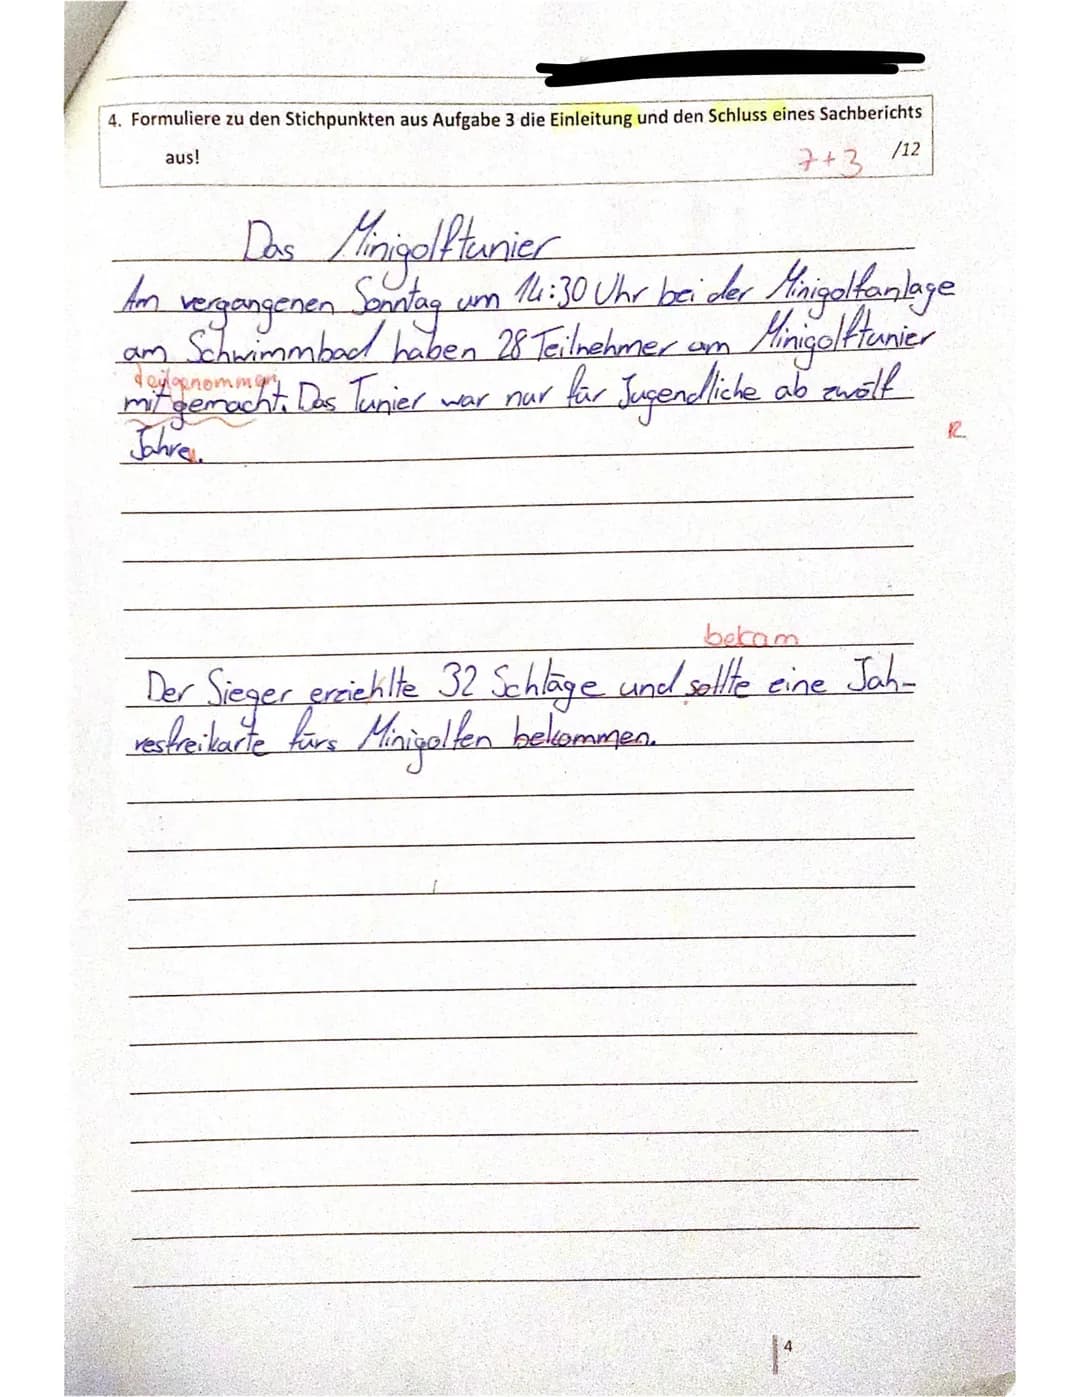 4. Formuliere zu den Stichpunkten aus Aufgabe 3 die Einleitung und den Schluss eines Sachberichts
aus!
7+3 /12
Das Minigolftunier
Am vergangenen Sonntag um 14:30 Uhr bei der Minigolfanlage
am Schwimmbad haben 28 Teilnehmer am Minigolftunier
teilgenommen
mitgemacht. Das Tunier war nur für Jugendliche ab zwölf
R
Jahre.
bekam
Der Sieger erziehlte 32 Schläge und sollte eine Jah-
resfreikarte fürs Minigolfen bekommen.
4